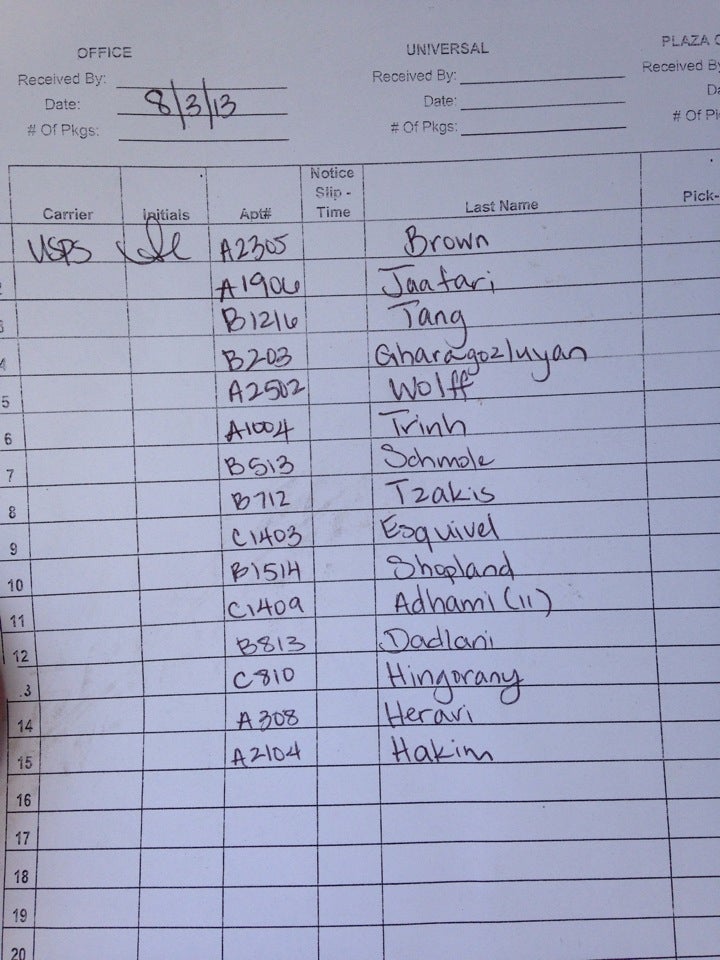 OFFICE UNIVERSAL PLAZA
Received By: Received By: Received By
Date: 8/3/13 Date:
# Of Pkgs: # Of Pkgs: # Of
Carrier Initials Apt# Notice Slip - Time Last Name Pick-
USPS A2305 Brown
A1906 Jaafari
B1216 Tang
B203 Gharagozluyan
5 A2502 Wolff
6 A1004 Trinh
7 B513 Schmole
8 B712 Tzakis
9 C1403 Esquivel
10 B1514 Shopland
11 C1409 Adhami (11)
12 B813 Dadlani
3 C810 Hingorany
14 A308 Heravi
15 A2104 Hakim
16
17
18
19
20